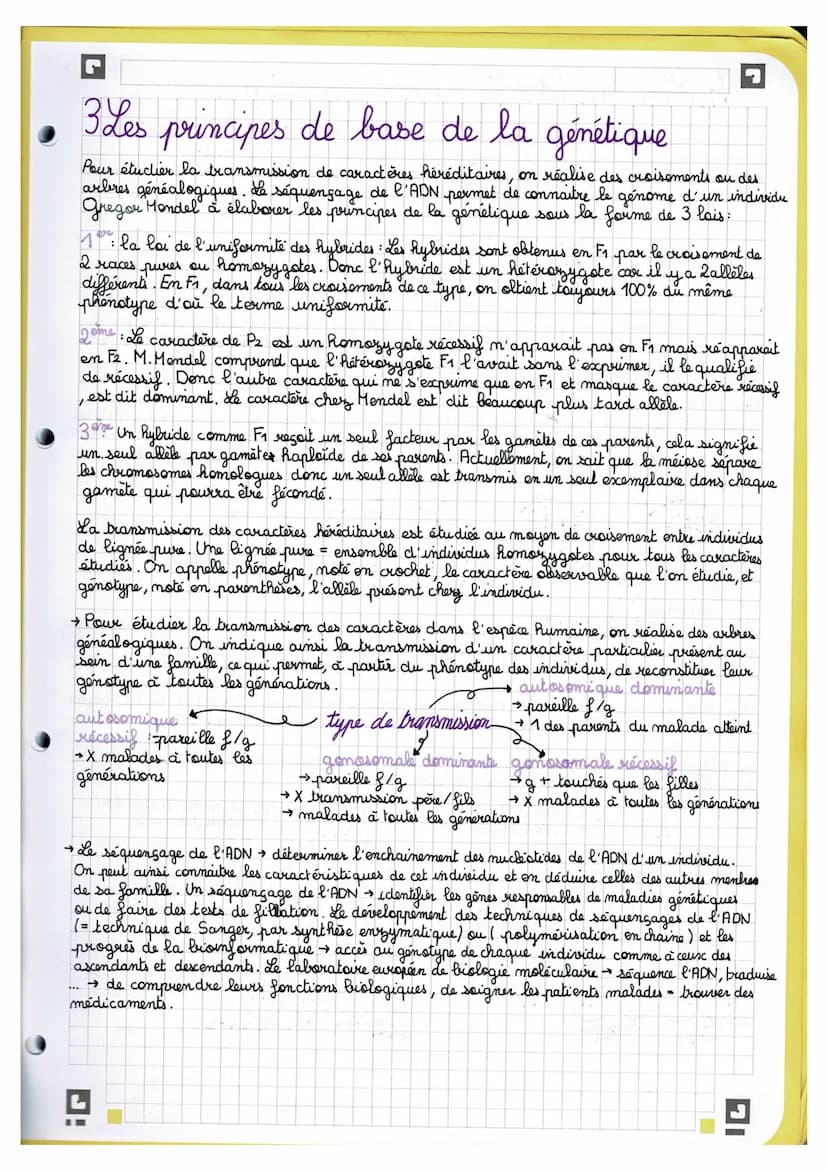 3 Les principes de base de la génétique
Pour étudier la transmission de caractères héréditaires, on réalise des croisements ou des
arbres généalogiques. Le séquençage de l'ADN permet de connaitre le génome d'un individu
Gregor Mendel à élaborer les principes de la génétique sous la forme de 3 lois :
1er : la loi de l'uniformité des hybrides : Les hybrides sont obtenus en F1 par le croisement de
2 races pures ou homozygotes. Donc l'hybride est un hétérozygote car il y a 2 allèles
différents. En F1, dans tous les croisements de ce type, on obtient toujours 100% du même
phénotype d'où le terme uniformité.
2ème : Le caractère de P2 est un homozygote récessif n'apparait pas en F1 mais réapparait
en F2. M. Mendel comprend que l'hétérozygote F1 l'avait sans l'exprimer, il le qualifie
de récessif. Donc l'autre caractère qui ne s'exprime que en F1 et masque le caractère récessif
, est dit dominant. Le caractère chez Mendel est dit beaucoup plus tard allèle.
3ème Un hybride comme F1 reçoit un seul facteur par les gamètes de ces parents, cela signifie
un seul allèle par gamètes haploïde de ses parents. Actuellement, on sait que la méiose sépare
les chromosomes homologues donc un seul allèle est transmis en un seul exemplaire dans chaque
gamète qui pourra être fécondé.
La transmission des caractères héréditaires est étudiée au moyen de croisement entre individus
de lignée pure. Une lignée pure = ensemble d'individus homozygotes pour tous les caractères
étudiés. On appelle phénotype, noté en crochet, le caractère observable que l'on étudie, et
génotype, noté en parenthèses, l'allèle présent chez l'individu.
→ Pour étudier la transmission des caractères dans l'espèce humaine, on réalise des arbres
généalogiques. On indique ainsi la transmission d'un caractère particulier présent au
sein d'une famille, ce qui permet, à partir du phénotype des individus, de reconstituer leur
génotype à toutes les générations.
autosomique dominante
→ pareille f/g
→ 1 des parents du malade atteint
type de transmission
autosomique
récessif : →pareille f/g
→ X malades à toutes les
générations
gonosomale dominante
→ pareille f/g
→ X transmission père/fils
→ malades à toutes les générations
gonosomale récessif
→ g + touchés que les filles
→ X malades à toutes les générations
→ Le séquençage de l'ADN → déterminer l'enchainement des nucléotides de l'ADN d'un individu.
On peut ainsi connaitre les caractéristiques de cet individu et en déduire celles des autres membres
de sa famille. Un séquençage de l'ADN → identifier les gènes responsables de maladies génétiques
ou de faire des tests de filiation. Le développement des techniques de séquençages de l'ADN
(= technique de Sanger, par synthèse enzymatique) ou ( polymérisation en chaine ) et les
progrès de la bioinformatique → accès au génotype de chaque individu comme à ceux des
ascendants et descendants. Le laboratoire européen de biologie moléculaire → séquence l'ADN, traduise
... → de comprendre leurs fonctions biologiques, de soigner les patients malades = trouver des
médicaments.